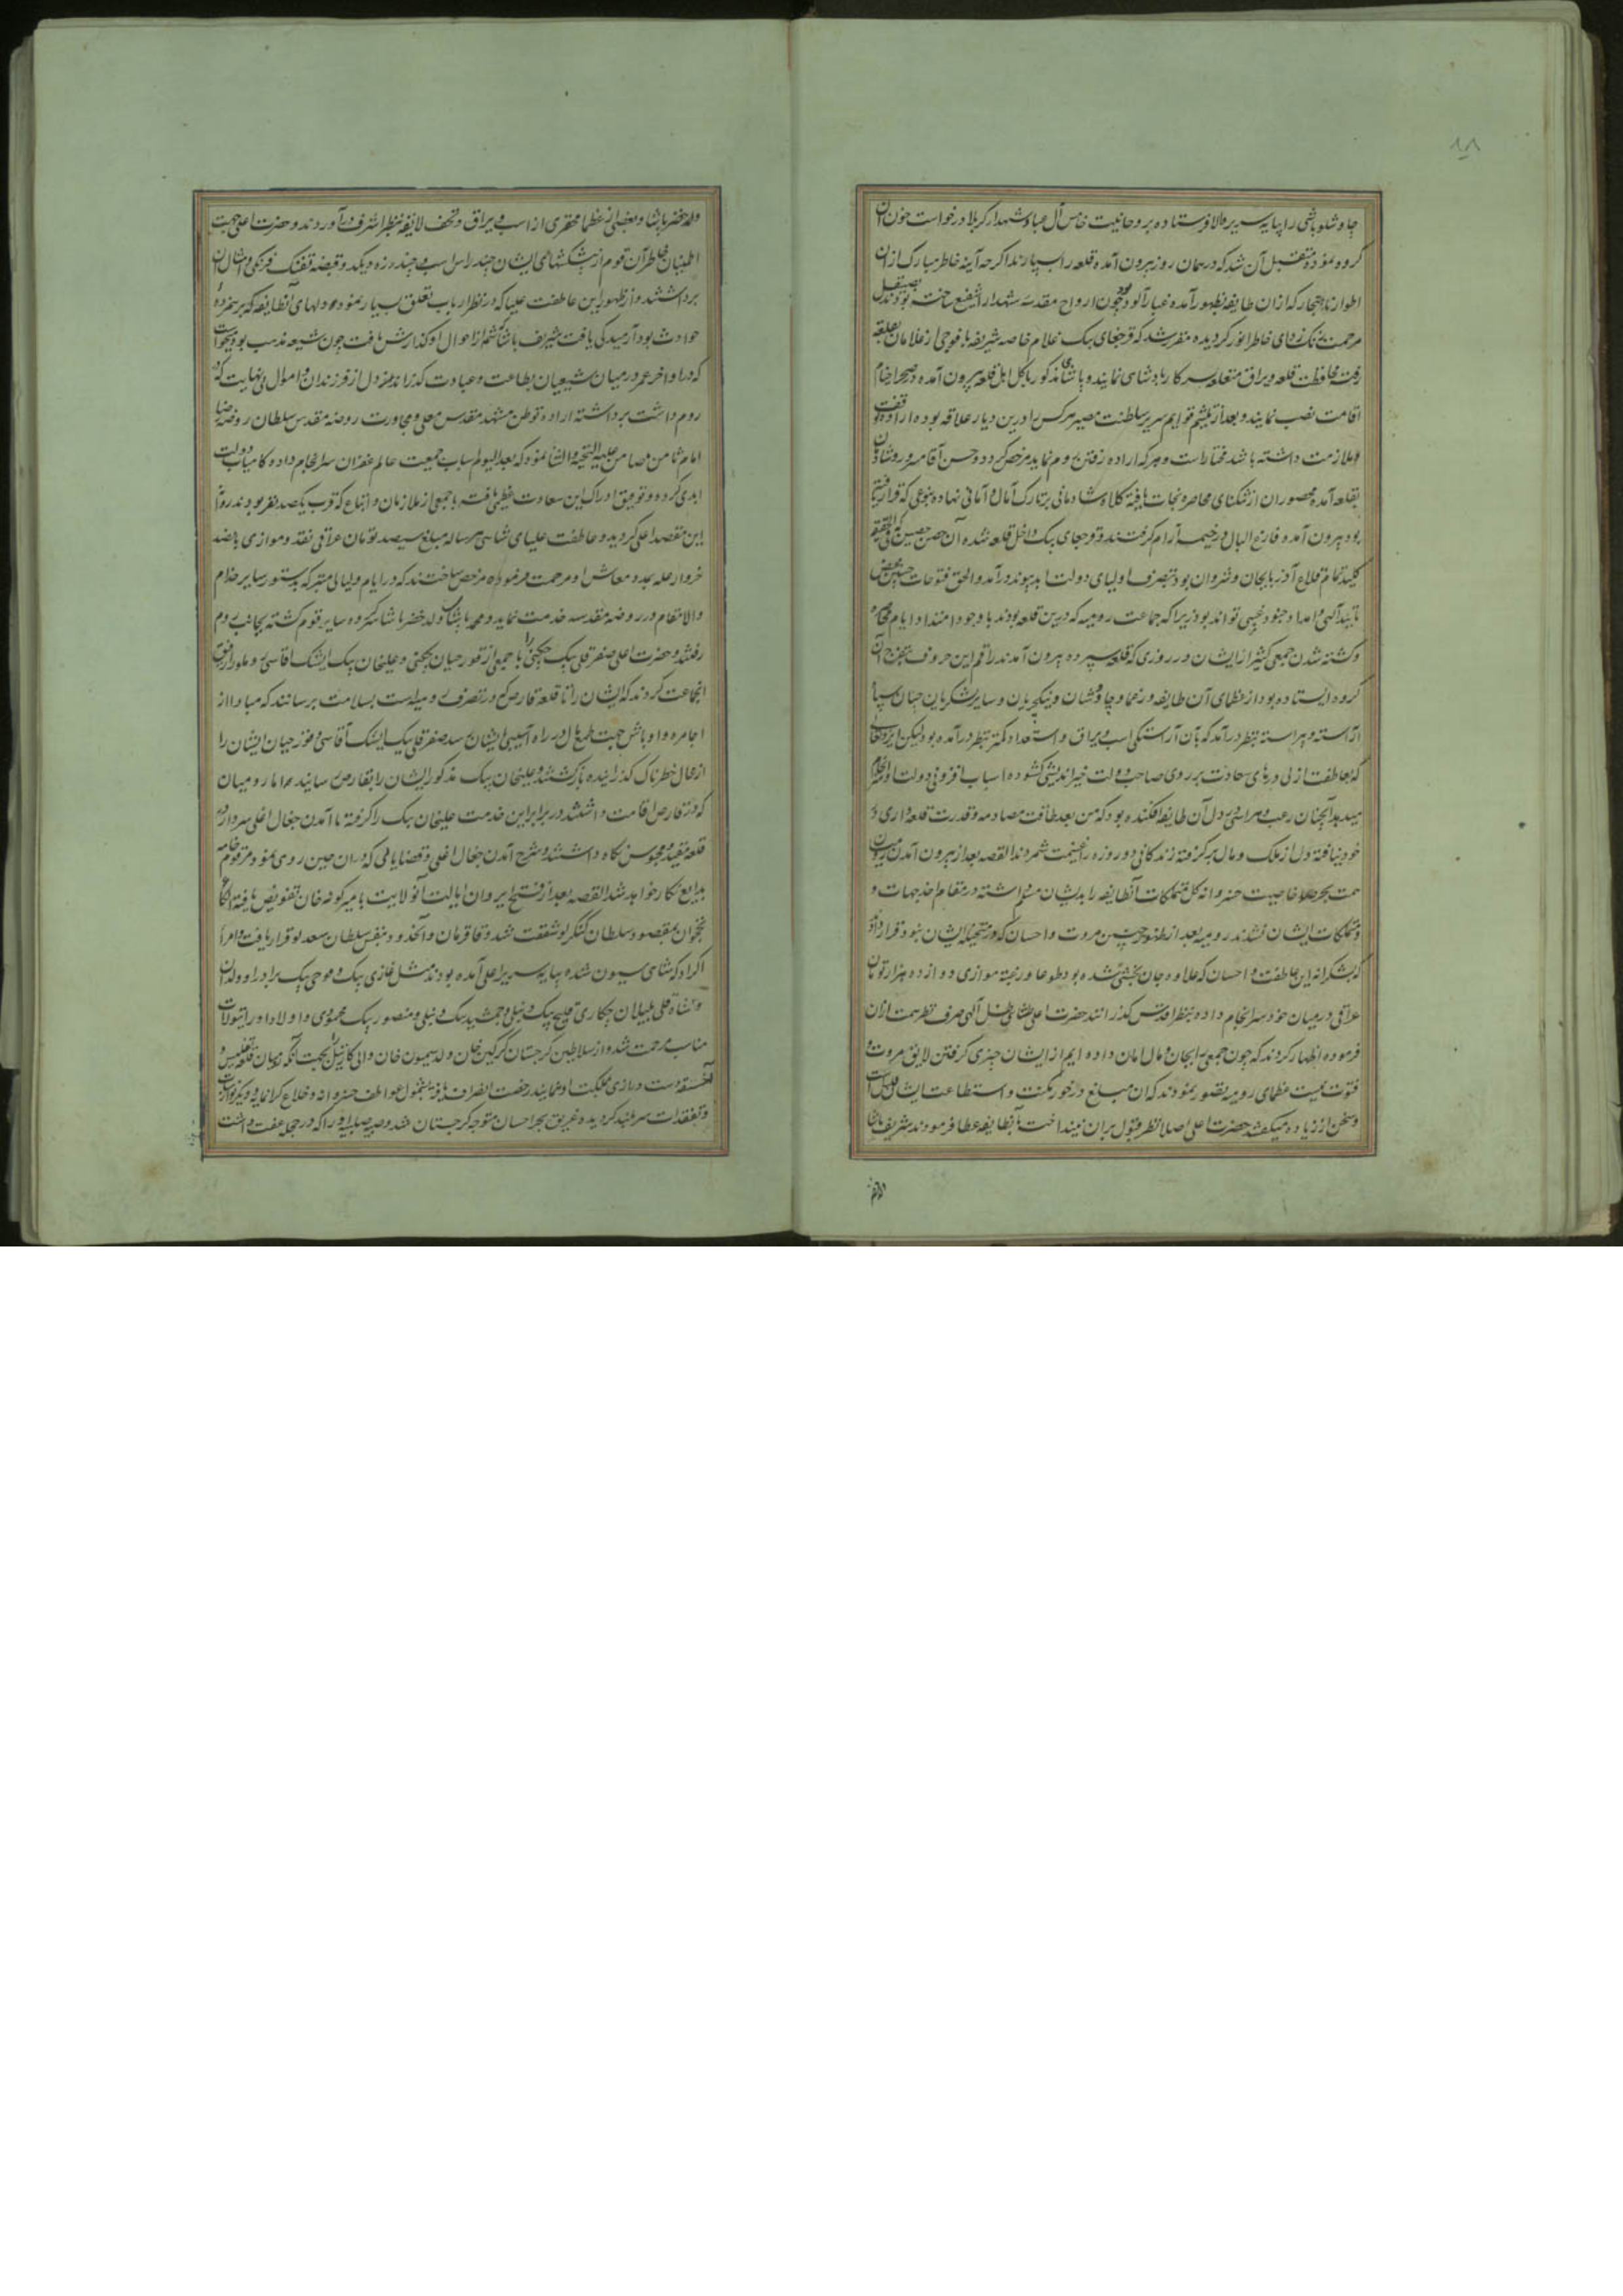 ۱۸
چاوشلو باشی را بپایه سریر والا فرستاده بروحانیت خامس آل عبا و شهدا کربلا درخواست خون آن
گروه نموده متقبل آن شد که در همان روز بیرون آمده قلعه را بسپارند اگر چه آینه خاطر مبارک از آن
اطوار ناهنجار که از ان طایفه بظهور آمده غبار آلود بود چون ارواح مقدسه شهدا را شفیع ساخته بودند
مرحمت زنک زدای خاطر انور گردیده مقرر شد که قرچغای بیک غلام خاصه شریفه با فوجی از غلامان بقلعه
رفته محافظت قلعه و یراق متعلقه سرکار پادشاهی نمایند و پاشای مذکور با کل اهل قلعه بیرون آمده در صحرا خیام
اقامت نصب نمایند و بعد از تلثیم قوایم سریر سلطنت مصیر هرکس را درین دیار علاقه بوده اراده توقف
و ملازمت داشته باشد مختار است و هر که اراده رفتن روم نماید مرخص گردد و حسن آقا مسرور و شادمان
بقلعه آمده محصوران از تنکنای محاصره نجات یافته کلاه شادمانی بر تارک آمال و امانی نهاده بنوعی که قرار یافته
بود بیرون آمده فارغ البال در خیمه آرام گرفتند و قرچغای بیک داخل قلعه شده آن حصن حصین که فی الحقیقه
کلید تمام قلاع آذربایجان و شروان بود بتصرف اولیای دولت ابد پیوند در آمد و الحق فتوحات چنین محض
تایید الهی و امداد جنود غیبی تواند بود زیرا که جماعت رومیه که درین قلعه بودند با وجود امتداد ایام محاصره
و کشته شدن جمعی کثیر از ایشان در روزی که قلعه سپرده بیرون آمدند راقم این حروف بتفرج آن
گروه ایستاده بود از عظمای آن طایفه و زعما و چاوشان و ینکیچریان و سایر لشکریان چنان سپاه
آراسته و پیراسته بنظر در آمد که بآن آراستکی اسب و یراق و استعداد کمتر بنظر در آمده بود لیکن ایزد تعالی
که بعاطفت ازلی درهای سعادت بر روی صاحب دولت خیر اندیشی کشوده اسباب افزونی دولت او سرانجام
میدهد آنچنان رعب و هراسی در دل آن طایفه افکنده بود که من بعد طاقت مصادمه و قدرت قلعه داری در
خود نیافته دل از ملک و مال برگرفته زندگانی دو روزه را غنیمت شمردند القصه بعد از بیرون آمدن رومیان
همت بحر خاصیت خسروانه کل متملکات آنطایفه را بدیشان مسلم داشته در مقام اخذ جهات و
متملکات ایشان نشدند رومیه بعد از ظهور چنین مروت و احسان که در متخیله ایشان نبود قرار دادند
که بشکرانه این عاطفت و احسان که علاوه جان بخشی شده بود طوعا و رغبة موازی دوازده هزار تومان
عراقی در میان خود سرانجام داده بنظر اقدس گذرانند حضرت اعلی شاهی ظل الهی صرف نظر همت از ان
فرموده اظهار کردند که چون جمعی را بجان و مال امان داده ایم از ایشان چیزی گرفتن لایق مروت و
فتوت نیست عظمای رومیه تصور نمودند که ان مبلغ در خور مکنت و استطاعت ایشان قلیل است
و سخن از زیاده میکفتند حضرت اعلی اصلا نظر قبول بر ان نینداخت بآنطایفه عطا فرمودند شریف پاشا
ولد خضر پاشا و بعضی از عظما محقری از اسب و یراق و تحف لایقه بنظر اشرف در آوردند و حضرت اعلی جهت
اطمینان خاطر آن قوم از پیشکشهای ایشان چند راس اسب و چند زره و یکدو قبضه تفنک فرنکی و امثال آن
برداشتند و از ظهور این عاطفت علیا که در نظر ارباب تعلق بسیار نمود دلهای آنطایفه که پژمرده
حوادث بود آرمیدگی یافت شریف پاشا شمه از احوال او گذارش یافت چون شیعه مذهب بود و میخواست
که در اواخر عمر در میان شیعیان بطاعت و عبادت گذراند دل از فرزندان و اموال بینهایت که در
روم داشت برداشته اراده توطن مشهد مقدس معلی و مجاورت روضه مقدس سلطان روضه رضا
امام ثامن ضامن علیه التحیه و الثنا نمود که بعد الیوم اسباب جمعیت عالم غفران سرانجام داده کامیاب دولت
ابدی گردد و توفیق ادراک این سعادت عظیمی یافته با جمعی از ملازمان و اتباع که قرب یکصد نفر بودند روانه
این مقصد اعلی گردید و عاطفت علیای شاهی هر ساله مبلغ سیصد تومان عراقی نقد و موازی پانصد
خروار غله بمدد معاش او مرحمت فرموده مرخص ساختند که در ایام و لیالی متبرکه بدستور سایر خدام
والا مقام در روضه مقدسه خدمت نماید و محمد پاشا ولد خضر پاشا سرکرده سایر قوم کشته بجانب روم
رفتند و حضرت اعلی صفر قلی بیک چکنی را با جمعی از قورچیان چکنی و علیخان بیک ایشک اقاسی و ملوران رفیق
انجماعت کردند که ایشان را تا قلعه قارص که در تصرف رومیه است بسلامت برسانند که مبادا از
اجامره و اوباش جهت طمع مال در راه آسیبی بایشان رسد صفر قلی بیک ایشک آقاسی و قورچیان ایشان را
از محال خطرناک گذرانیده بازگشتند و علیخان بیک مذکور ایشان را بقارص رسانید اما رومیان
که در قارص اقامت داشتند در برابر این خدمت علیخان بیک را گرفته تا آمدن جغال اغلی سردار در
قلعه مقید و محبوس نگاه داشتند و شرح آمدن جغال اغلی و قضایائی که در ان حین روی نمود مرقوم خامه
بدایع نگار خواهد شد القصه بعد از فتح ایروان ایالت آنولایت بامیر گونه خان تفویض یافته الکا
نخجوان بمقصود سلطان کنگرلو شفقت شد و قاقزمان و آنحدود بنفس سلطان سعدلو قرار یافت و امراء
اکراد که شاهی سیون شده بپایه سریر اعلی آمده بودند مثل غازی بیک و موحی بیک برادر او و ولدان
شاه قلی بلیلان حکاری و قلیج بیک و دنبلی و جمشید بیک دنبلی و منصور بیک محمودی و اولاد او را تیولات
مناسب مرحمت شد و از سلاطین گرجستان گرگین خان ولد سیمون خان والی کارتیل را بجهت آنکه رومیان قلعه تفلیس
دست درازی بمملکت او ننمایند رخصت انصراف یافته بشمول عواطف خسروانه و خلاع گرانمایه و دیگر نوازشات
و تفقدات سربلند گردیده غریق بحر احسان متوجه گرجستان شد و صبیه صلبیه او را که در حجله عفت داشت